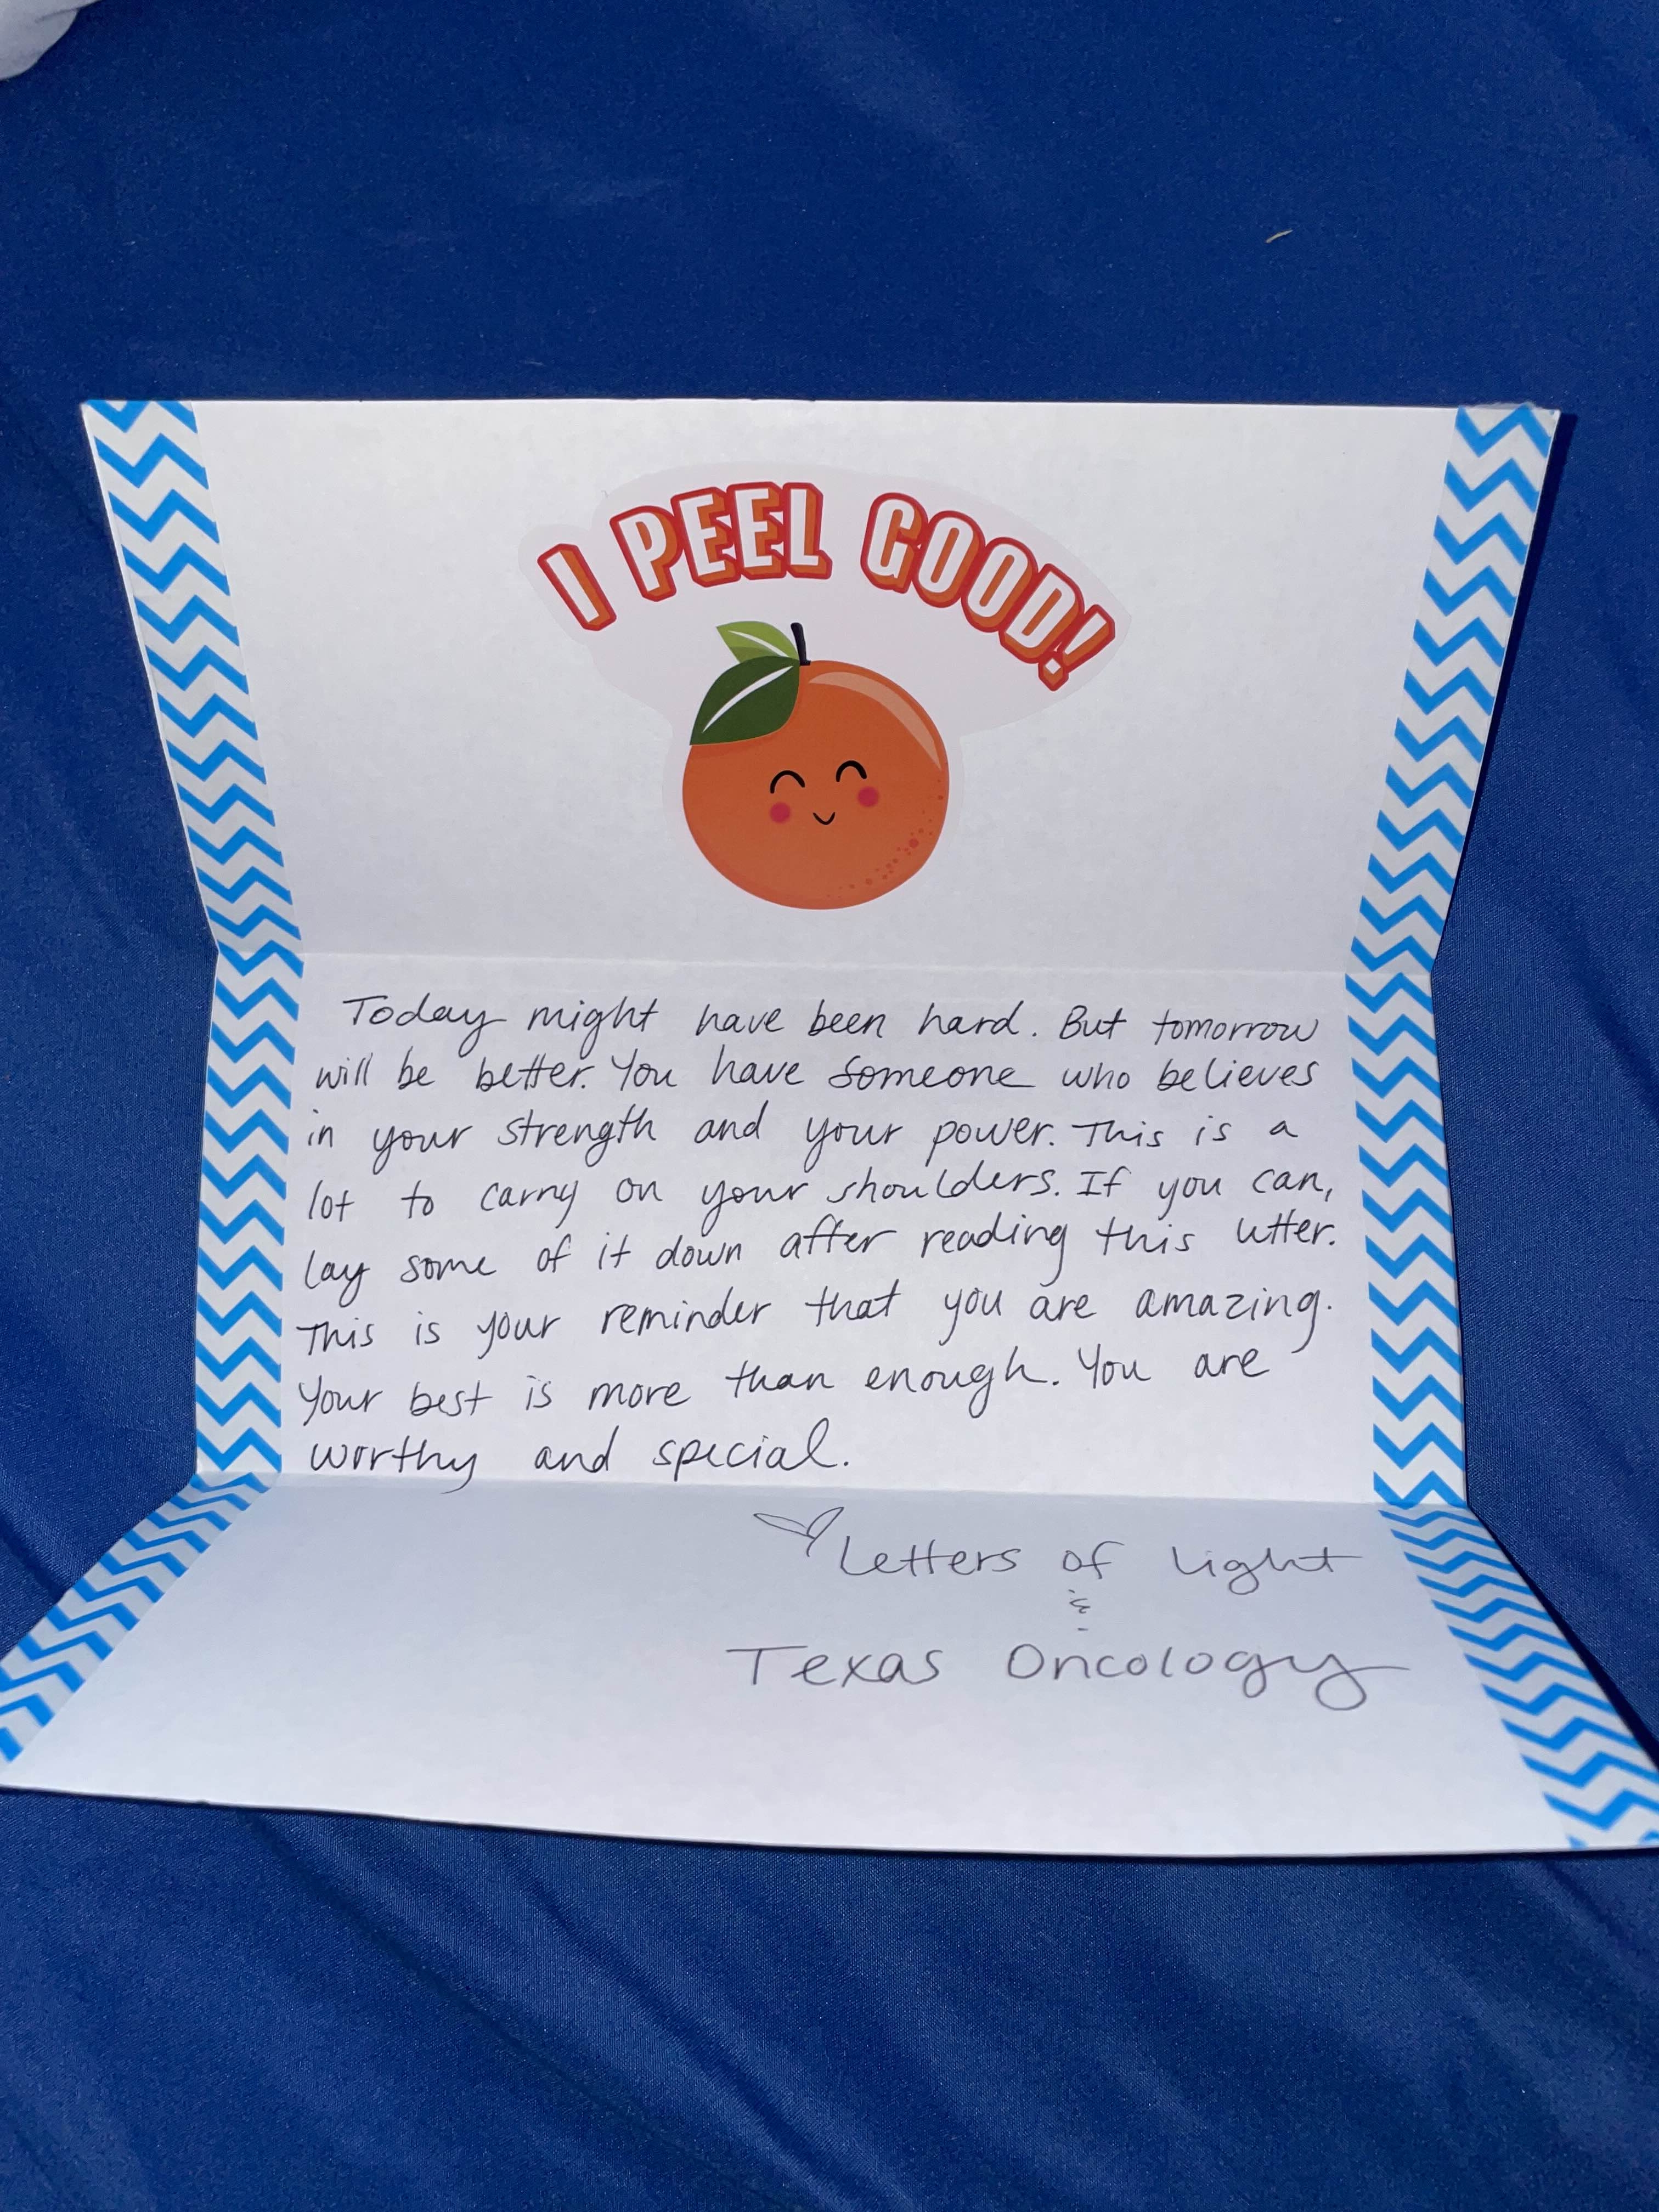 I PEEL GOOD!
Today might have been hard. But tomorrow
will be better. You have someone who believes
in your strength and your power. This is a
lot to carry on your shoulders. If you can,
lay some of it down after reading this letter.
This is your reminder that you are amazing.
Your best is more than enough. You are
worthy and special.
Letters of Light
&
Texas Oncology